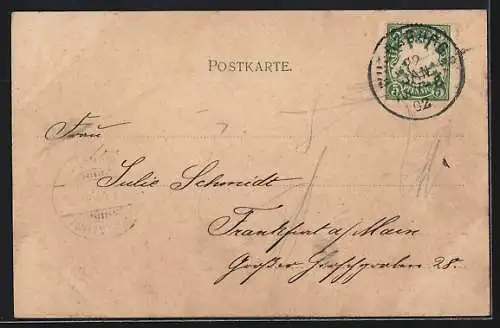 POSTKARTE.
Frau
Julie Schmidt
Frankfurt a/Main
Großer Hirschgraben 28.
5 PFENNIG 5
02